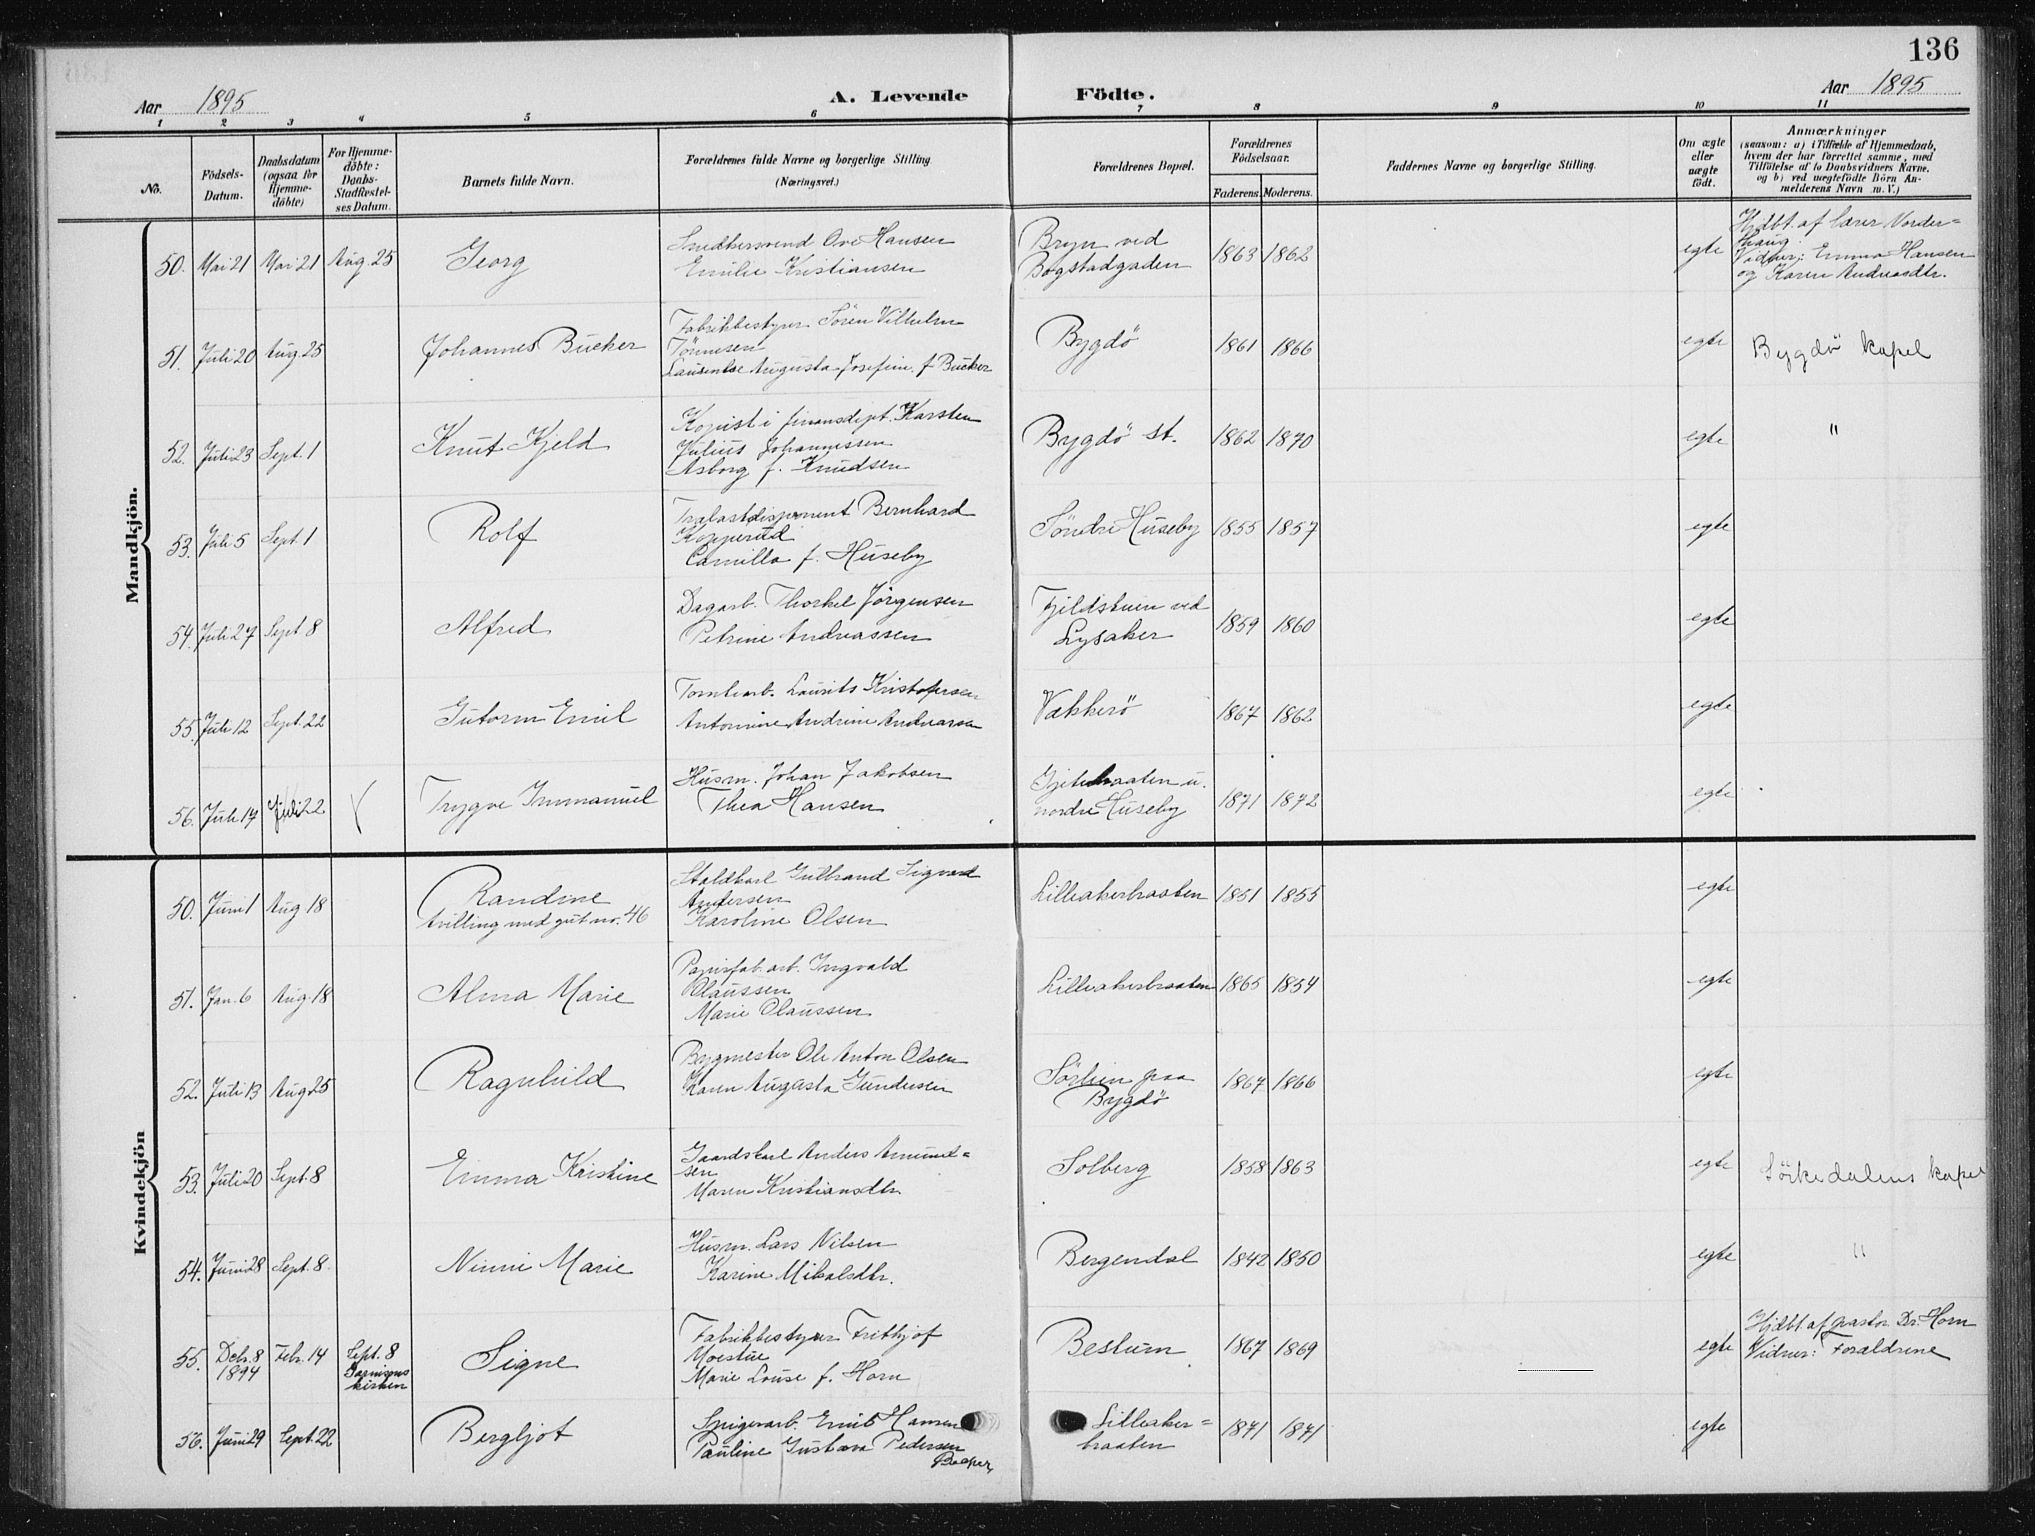 136
Aar 1895
A. Levende Födte.
Aar 1895
1 2 3 4 5 6 7 8 9 10 11
No.
Födsels-
Datum.
Daabsdatum
(ogsaa for
Hjemme-
döbte)
For Hjemme-
döbte:
Daabs-
Stadfæstel-
ses Datum.
Barnets fulde Navn.
Forældrenes fulde Navne og borgerlige Stilling.
(Næringsvei.)
Forældrenes Bopæl.
Forældrenes
Födselsaar.
Faderens. Moderens.
Faddernes Navne og borgerlige Stilling.
Om ægte
eller
uægte
födt.
Anmærkninger
(saasom: a) i Tilfælde af Hjemmedaab,
hvem der har forrettet samme, med
Tilföielse af to Daabsvidners Navne.
og b) ved uægtefödte Börn An-
melderens Navn m. V.)
Mandkjön.
50. Mai 21 Mai 21 Aug. 25 Georg
Snedkersvend Ove Hansen
Emilie Kristiansen
Bryn ved
Bogstadgaden
1863 1862 egte
Hjdbt. af lærer Norder=
haug
Vidner: Emma Hansen
og Karen Andreasdtr.
51. Juli 20 Aug. 25 Johannes Bücker
Fabrikbestyrer Sören Vilhelm
Tönnesen
Laurentse Augusta Josefine f. Bücker
Bygdö 1861 1866 egte Bygdö kapel
52. Juli 23 Sept. 1 Knut Kjeld
Kopist i finansdept. Karsten
Julius Johannessen
Asborg f. Knudsen
Bygdö st. 1862 1870 egte "
53. Juli 5 Sept. 1 Rolf
Trælastdisponent Bernhard
Kopperud
Camilla f. Huseby
Söndre Huseby 1855 1857 egte
54. Juli 27 Sept. 8 Alfred
Dagarb. Thorkel Jörgensen
Petrine Andreassen
Fjeldstuen ved
Lysaker
1859 1860 egte
55. Juli 12 Sept. 22 Gutorm Emil
Tomtearb. Laurits Kristofersen
Antonine Andrine Andreassen
Vækkerö 1867 1862 egte
56. Juli 17 Juli 22 Trygve Immanuel
Husm. Johan Jakobsen
Thea Hansen
Gjetebraaten u.
nordre Huseby
1871 1872 egte
Kvindekjön
50. Juni 1 Aug 18 Randine
tvilling med gut no. 46
Staldkarl Gulbrand Sigvard
Andersen
Karoline Olsen
Lilleakerbraaten 1851 1855 egte
51. Jan. 6 Aug. 18 Alma Marie
Papirfab. arb. Ingvald
Olaussen
Marie Olaussen
Lilleakerbraaten 1865 1854 egte
52. Juli 13 Aug 25 Ragnhild
Bygmester Ole Anton Olsen
Karen Augusta Gundersen
paa
Bygdö
1867 1866 egte
53. Juli 20 Sept. 8 Emma Kristine
Gaardskarl Anders Amund=
sen
Maren Kristiansdtr.
Solberg 1858 1863 egte Sörkedalens kapel
54. Juni 28 Sept. 8. Ninni Marie
Husm. Lars Nilsen
Karine Mikalsdtr.
Bergendal 1842 1850 egte "
55. Debr. 8
1894
Febr. 14 Sept. 8
Garnisons
kirken
Signe
Fabrikbestyrer Frithjof
Moestue
Marie Louse f. Horn
Bestum 1867 1869 egte
Hjdbt. af pastor Dr. Horn
Vidner: Forældrene
56. Juni 29 Sept. 22 Bergljot
Spigerarb. Emil Hansen
Pauline Gustava Pedersen
Lilleaker=
braaten
1871 1871 egte